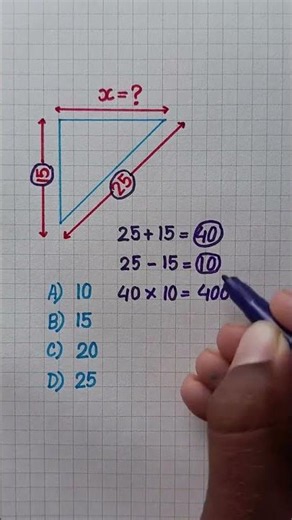 x = ?
15
25
25 + 15 = 40
25 - 15 = 10
40 × 10 = 400
A) 10
B) 15
C) 20
D) 25